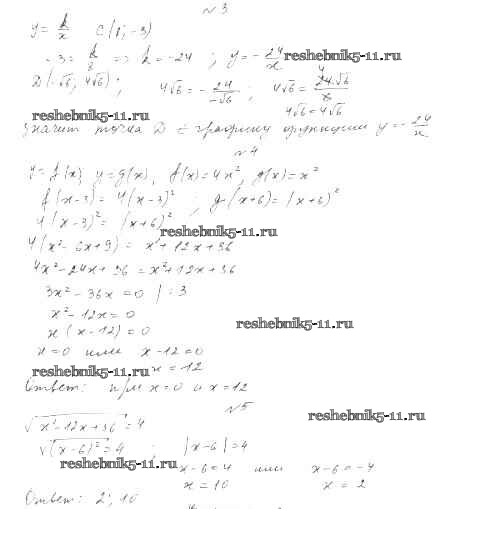 №3
y = k/x   C(8; -3)
-3 = k/8 => k = -24 ; y = -24/x
reshebnik5-11.ru
D(-√6; 4√6) ; 4√6 = -24/-√6 ; 4√6 = 24·√6/6
4
reshebnik5-11.ru
4√6 = 4√6
Значит точка D ∈ графику функции y = -24/x
№4
y = f(x), y = g(x), f(x) = 4x², g(x) = x²
f(x-3) = 4(x-3)² ; g(x+6) = (x+6)²
4(x-3)² = (x+6)²
reshebnik5-11.ru
4(x² - 6x + 9) = x² + 12x + 36
4x² - 24x + 36 = x² + 12x + 36
3x² - 36x = 0 | : 3
x² - 12x = 0
reshebnik5-11.ru
x(x - 12) = 0
x = 0 или x - 12 = 0
reshebnik5-11.ru x = 12
Ответ: при x = 0 и x = 12
№5
√x² - 12x + 36 = 4
reshebnik5-11.ru
√(x-6)² = 4 ; |x-6| = 4
reshebnik5-11.ru
x-6 = 4 или x-6 = -4
x = 10   x = 2
Ответ: 2; 10